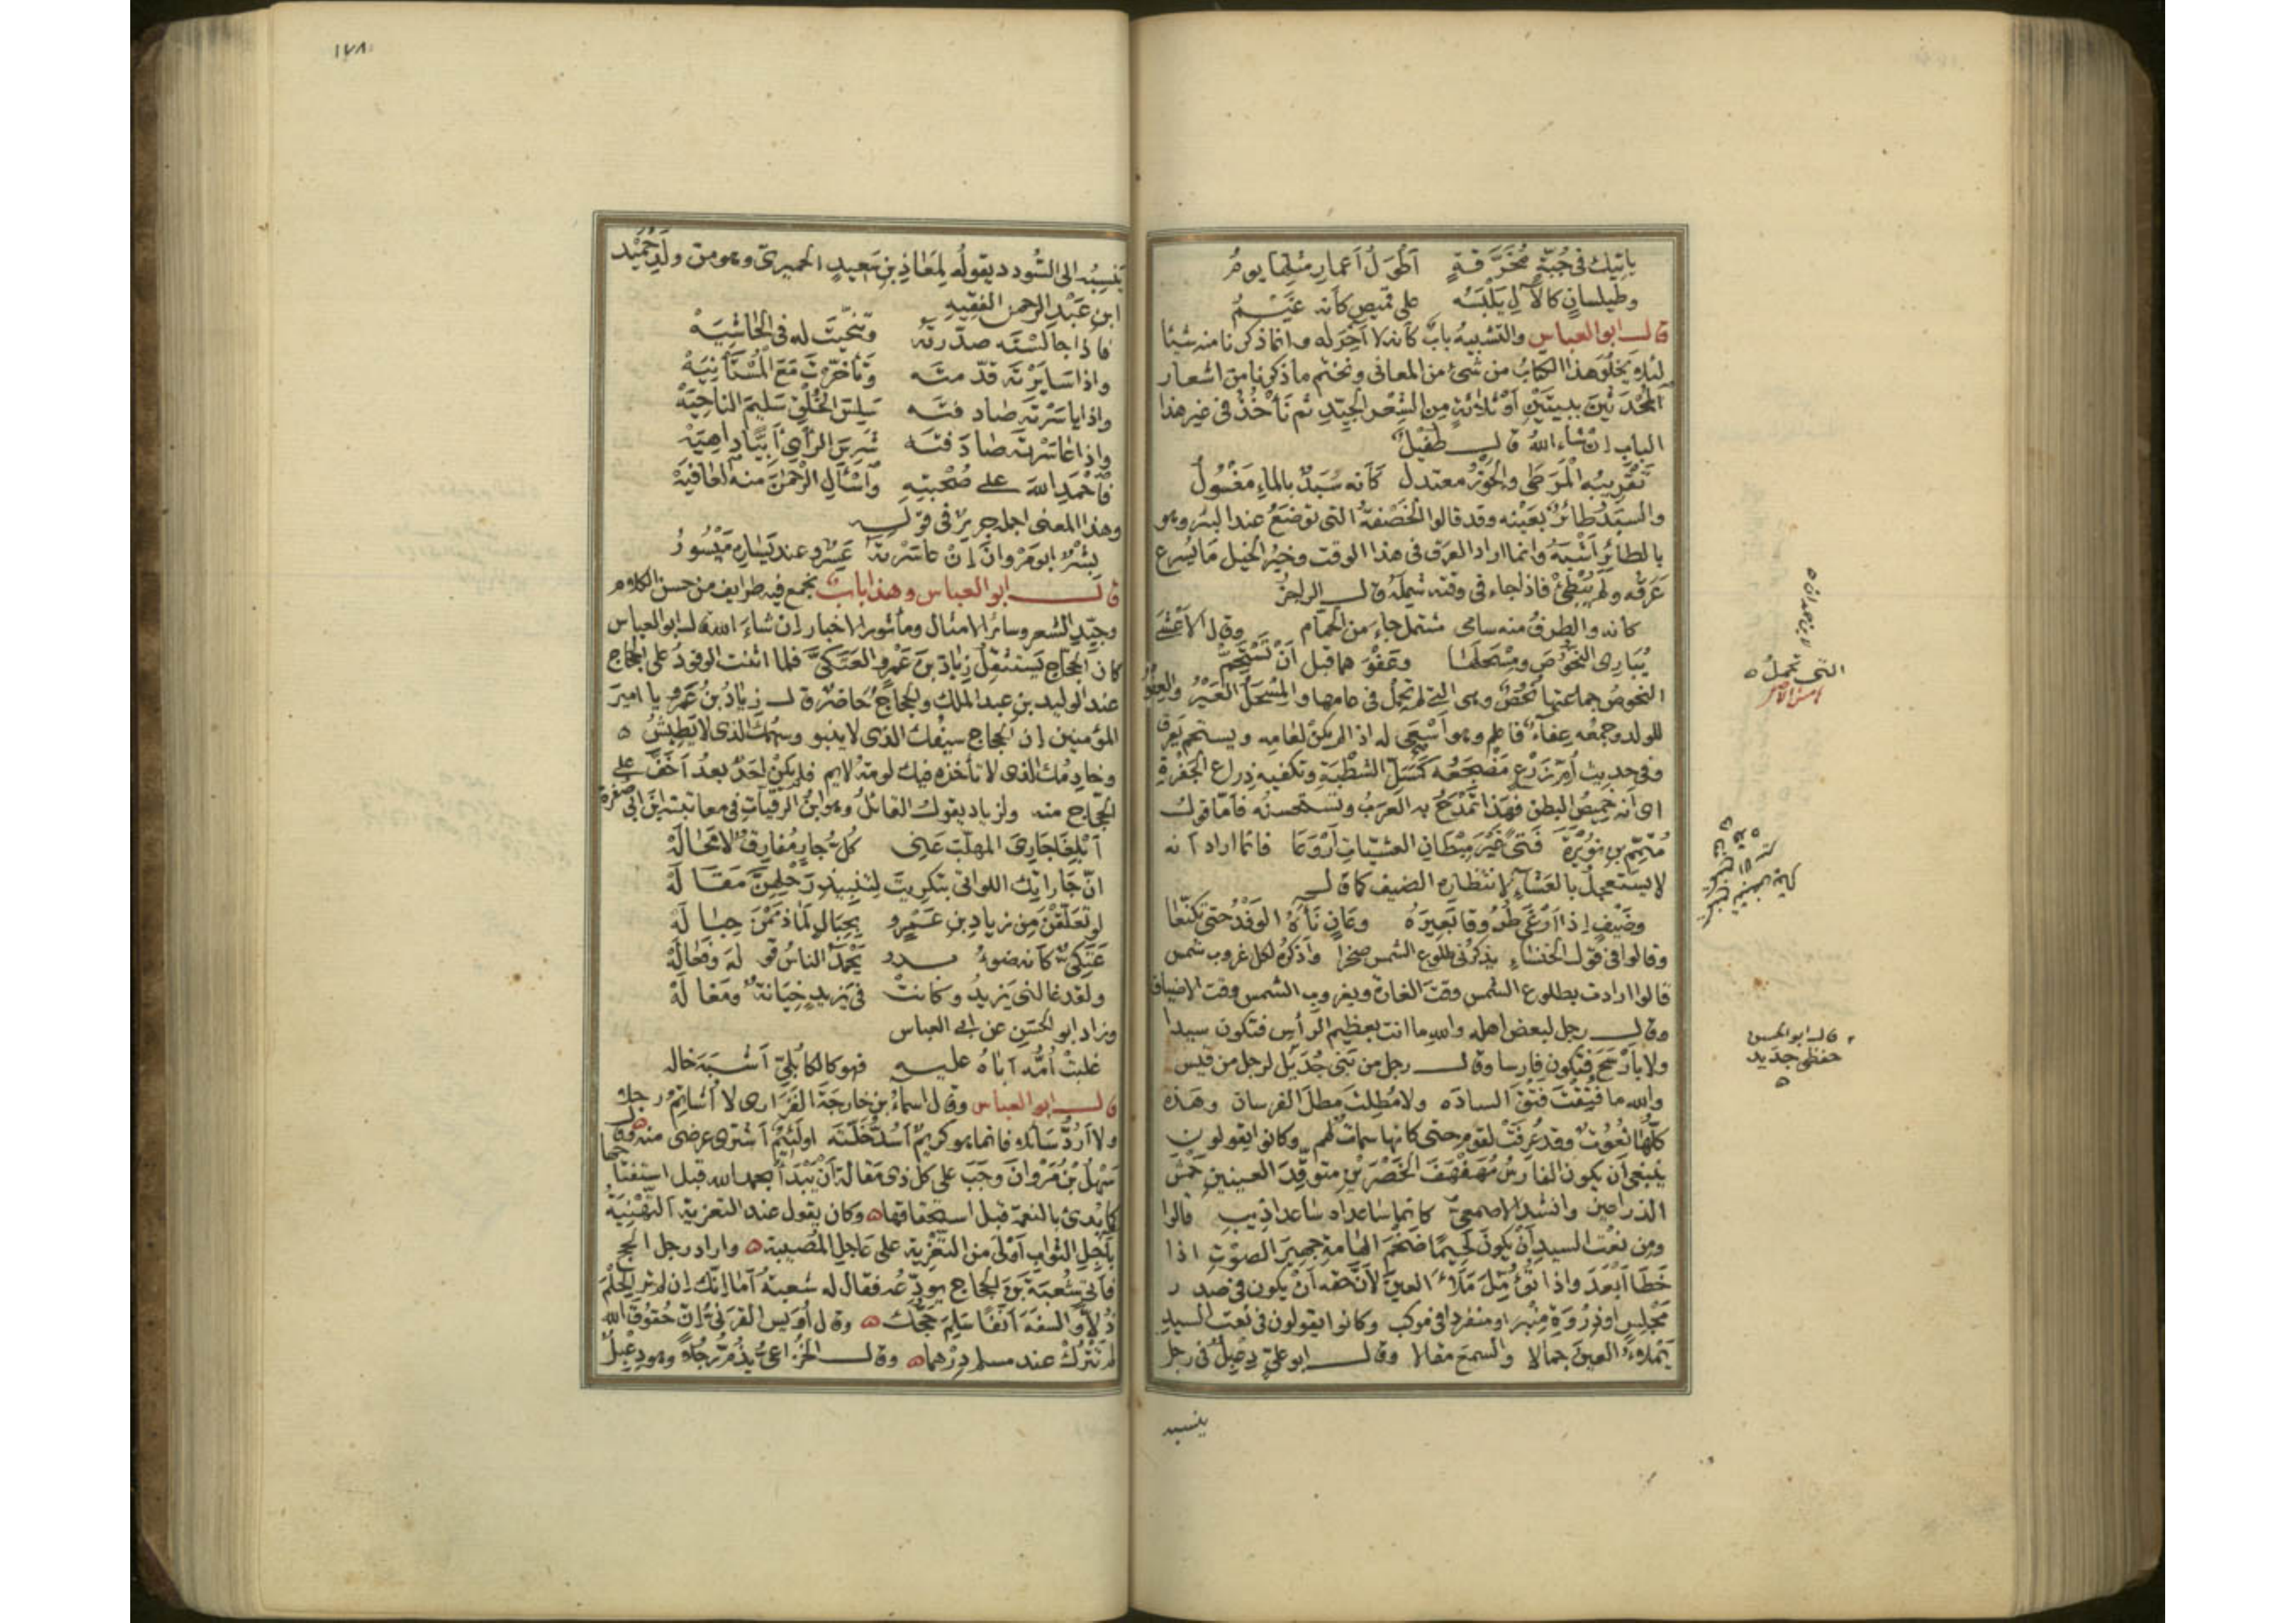 يأتيك في جُبّةٍ مُخَرَّقةٍ أطْوَلُ أعمارِ مثلِها يومُ
وطيلسانٍ كالآلِ يَلْبَسُه على قميصٍ كأنه غَيْمُ
قال ابو العباس والتشبيهُ بابٌ كأنه لا آخِرَ له وانما ذكرنا منه شيئا
لئلا يَخْلُوَ هذا الكتابُ من شيئ من المعانى ونختم ما ذكرنا من اشعار
المُحْدَثينَ ببيتَيْنِ أوْ ثلاثةٍ مِن الشِعْر الجَيّدِ ثم نَأْخُذُ فى غير هذا
الباب إنْ شاء اللهُ قال طُفَيْلٌ
تَقْرِيبُه المَرَطَى والجَوْزُ معتدل كَأنّه سُبَدٌ بالماءِ مَغْسُولُ
والسبَدُ طائرٌ بعَيْنه وقد قالوا الخَصَفةُ التى توضَعُ عند البئر وهو
بالطائر أشْبَهُ وانما اراد العرَق فى هذا الوقت وخيرُ الخيل مَا يُسرع
عَرَقُه ولم يُبْطِئ فاذا جاء فى وقته شَمِلَهُ قال الراجزُ
كأنه والطرفُ منه سامى مشتمل جاء من الحمّام وقال الأعْشَى
يُبَارِى النَّحُوصَ ومِسْحَلَها وعَفْوَهما قبل أنْ تَسْتَحِمّ
النحوصُ جماعتها نُحُصٌ وهى التى لم تحمل فى عامها والمِسْحَلُ العَيْرُ والعِفْوُ
للولد وجمعُه عِفاءٌ فاعلم وهو أسْرَعُ له اذا لم يكن لعامه ويستحم يَعرَق
وفى حديث أمّ زَرْعٍ مَضْجَعُه كَمَسَلّ الشَطْبَةِ وتكفيه ذِراعُ الجَفْرَةِ
اى أنه خَمِيصُ البطن فهَذا تَمْدَحُ به العرَبُ وتستحسنُه فأمّا قول
مُتَمِّم بن نُوَيْرَةَ فَتىً غَيْرَ مِبْطانِ العشيّاتِ أرْوَعَا فانّما اراد أنه
لا يستعجلُ بالعَشَاءِ لانتظاره الضيف كما قال
وضَيْفٍ إذا أرْغَى طُرُوقا بَعِيرَهُ وعَانٍ نَآهُ الوَفْدُ حتى تكنّعا
وقالوا فى قول الخنساءِ يذكرُنى طلوع الشمس صخرا وأذكرُه لكل غروب شمس
قالوا ارادت بطلوع الشمس وقتَ الغارة وبغروب الشمس وقت الاضياف
وقال رجل لبعض اهله والله ما انت بعظيم الرأس فتكون سيدا
ولا بأرْسَحَ فتكون فارسا وقال رجل من بَنى جُدَيْل لرجل من قيس
والله ما فُتِقْتَ فَتْقَ السادَه ولا مُطِلْتَ مَطلَ الفرسان وهذه
كلُّها نُعُوتٌ وقد عُرِفَتْ لقوم حتى كانها سِماتٌ لهم وكانوا يقولون
ينبغى أن يكون الفارسُ مُهَفْهَفَ الخَصْرَيْنِ متوقِّدَ العينين حَمْشَ
الذراعين وانشد الاصمعىّ كانما ساعداه ساعدا ذيبِ قالوا
ومن نعْت السيد أنْ يكونَ لَحِيمًا ضَخْمَ الهَامةِ جهيرَ الصوْتِ اذا
خَطَا أبْعَدَ واذا تُؤُمِّلَ مَلأ العينَ لأنّ حقه أنْ يكون فى صدر
مَجْلِسٍ او ذِرْوَةِ مِنْبَر او منفردا فى موكب وكانوا يقولون فى نَعت السيد
يَمْلاءُ العينَ جمالا والسمعَ مقالا وقال ابو علىّ دِعْبِلٌ فى رجل
ينسبه
التى تحمل
قال ابو الحسن
حفظى جديد
١٧٨
يَنسِبُه الى السُودد يقولُه لِمُعَاذِ بن سَعيدٍ الحميرىّ وهو من ولَدِ حُمَيْد
ابن عَبْدِ الرحمن الفَقِيهِ
فاذا جالَسْتَه صدّرتَهُ وتنَحّيْتَ له فى الحَاشِيَهْ
واذا سَايَرْتَه قدّمتَه وتَأخّرْتَ مَعَ المُسْتَأنِيَهْ
واذا ياسَرْتَه صادفتَه سَلِسَ الخُلْقِ سَلِيمَ الناحِيَهْ
واذا عَاسَرْتَه صادَفتَه شَرِسَ الرأىِ أبِيًّا داهِيَهْ
فَاحْمَدِ اللهَ على صُحْبتِهِ وَاسْألِ الرَّحْمنَ منه العَافِيَهْ
وهذا المعنى اجمله جريرٌ فى قوله
بِشْرٌ ابو مَرْوانَ إنْ عَاسَرْتَهُ عَسِرٌ وعند يَسَارِه مَيْسُورُ
قال ابو العباس وهذا بابٌ نجمع فيه طرايف من حسن الكلام
وجيّدِ الشعر وسائر الامثال ومأثور الاخبار إن شاءَ الله قال ابو العباس
كان الحجاجُ يَستثقِلُ زيادَ بنَ عَمْروٍ العَتَكِىَّ فلما اثنت الوفودُ على الحجاج
عند الوليد بن عبد الملك والحجاجُ حَاضرٌ قال زيادُ بنُ عَمرو يا امير
المؤمنين إنّ الحجاج سيفُك الذى لا ينبو وسهمك الذى لا يَطيشُ
وخادِمُك الذى لا تأخذه فيك لومةُ لايم فلم يكن احَدٌ بعدُ أخَفَّ على
الحجاج منه ولزياد يقول القائلُ وهو ابنُ الرقَيّاتِ فى معاتبته ابنَ ابى صفرة
أبلِغا جارِىَ المهلّبَ عَنِى كلُّ جارٍ مُفارِقٌ لا مَحَالَهْ
انّ جَاراتِك اللواتى بتكريتَ لتنبيذِ رَحْلِهِنَّ مَقَالَهْ
لو تعَلّقْنَ مِن زيادِ بن عَمْرٍو بِحِبَالٍ لَمَا ذمَمْنَ حِبَالَهْ
عَتَكِىٌّ كأنه ضوءُ بدرٍ يَحْمَدُ الناسُ قولَهُ وفَعَالَهْ
ولقد غالنى يَزيدُ وكانتْ فى يَزيدٍ خِيَانةٌ ومَغالَهْ
وزاد ابو الحسَنِ عن ابى العباس
غلبَتْ أُمُّه أباهُ عليهِ فهو كالكابُلىّ أشبَهَ خاله
قال ابو العباس وقال اسماءُ بن خارجَةَ الفَزَارى لا أُشَاتِمُ رجلا
ولا أرُدُّ سَائلا فانما هو كريمٌ أسُدّ خَلّتَه او لئيمٌ أشترى عرضى منه وقال
سَهلُ بنُ هَرْوانَ وجَبَ على كل ذى مَقالة أنْ يَبْدَأَ بحمد الله قبل استفتاحها
كما بُدئ بالنعمة قبل استحقاقها وكان يقول عند التعزية التَهْنِيَةُ
بآجِلِ الثوابِ أوْلَى من التعْزِية على عَاجِلِ المُصيبة واراد رجل الحج
فأتى شُعبَةَ بنَ الحجاج يودّعُه فقال له شعبةُ أمَا انّك إن لم تر الحِلْمَ
ذُلاًّ والسفَهَ أنَفًا سَلِمَ حَجُّكَ وقال أُوَيْس القرَنىُّ إنّ حُقوقَ الله
لم تَتْرُكْ عند مسلم دِرْهما وقال الخُزاعىُّ يذُمُّ رجُلا وهو دِعْبِلٌ